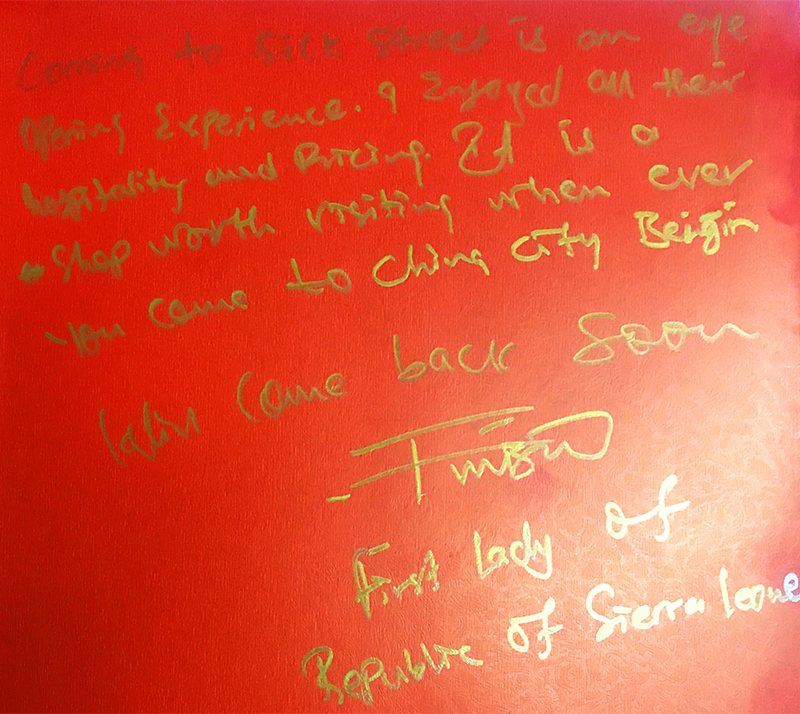 Coming to Silk Street is an eye
Opening Experience. I Enjoyed all their
hospitality and Pricing. It is a
Shop worth visiting when ever
you come to China city Beigin
Will Come back Soon
First Lady of
Republic of Sierra Leone